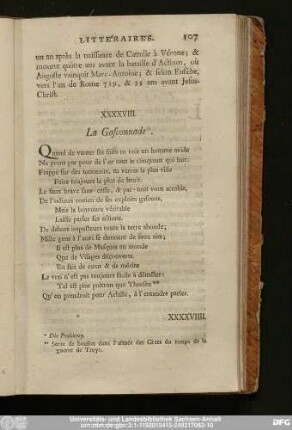 LITTERAIRES. 107
un an après la naissance de Catulle à Vérone; &
mourut quatre ans avant la bataille d'Actium, où
Auguste vainquit Marc-Antoine; & selon Eusèbe,
vers l'an de Rome 729, & 25 ans avant Jesus-
Christ.
XXXXVIII.
La Gasconnade*.
Quand de vanter ses faits on voit un homme avide
Ne prens pas pour de l'or tout le clinquant qui luit:
Frappe sur des tonneaux, tu verras le plus vide
Faire toujours le plus de bruit.
Le faux brave sans-cesse, & par-tout vous accable,
De l'odieux de ses exploits gascons,
Mais la bravoure véritable
Laisse parler ses actions.
De dehors imposteurs toute la terre abonde;
Mille gens à l'envi se donnent de faux airs;
Il est plus de Masques au monde
Que de Visages découverts.
En fait de cœur & de mérite
Le vrai n'est pas toujours facile à démêler:
Tel est plus poltron que Thersite**
Qu'on prendroit pour Achille, à l'entendre parler.
XXXXVIIII.
* Dile
** Sorte de boufon dans l'armée des Grecs du temps de la
guerre de Troye.
Universitäts- und Landesbibliothek Sachsen-Anhalt
urn:nbn:de:gbv:3:1-1150015415-249217062-10
DFG